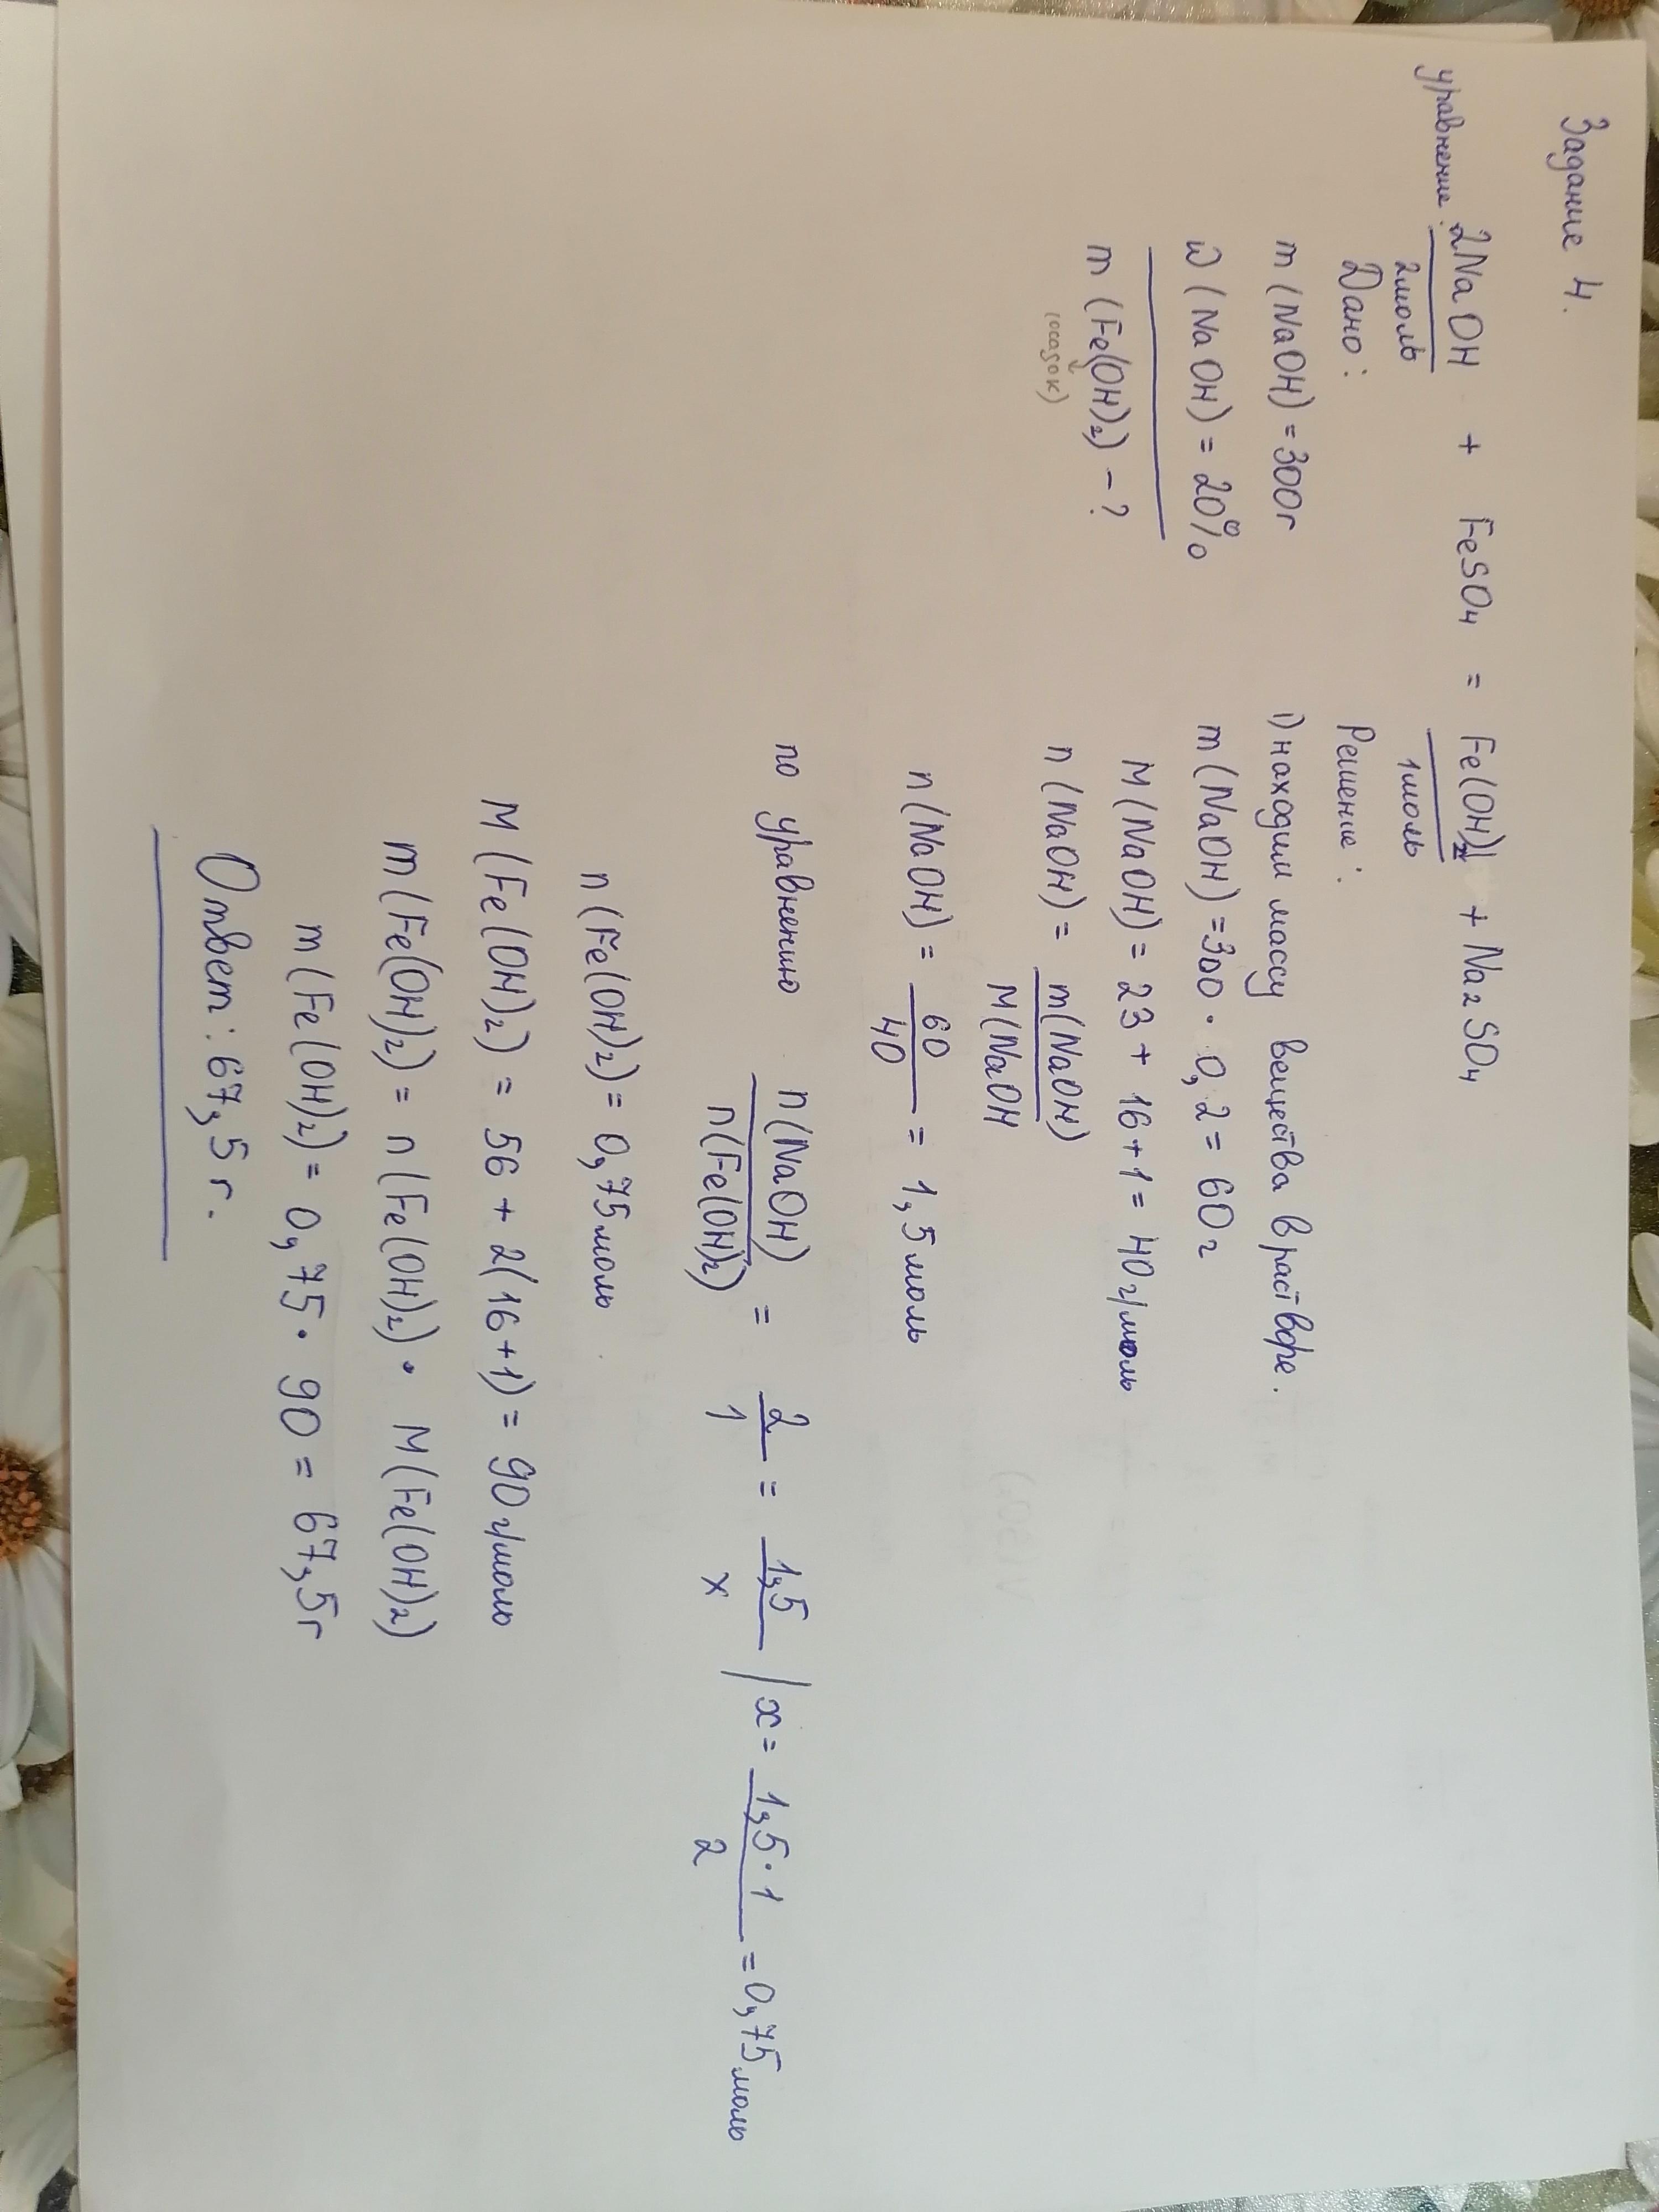 Задание 4.
уравнение: 2NaOH + FeSO₄ = Fe(OH)₂↓ + Na₂SO₄
2моль 1моль
Дано:
m (NaOH) = 300г
ω (NaOH) = 20%
m (Fe(OH)₂) - ?
(осадок)
Решение:
1) находим массу вещества в растворе.
m (NaOH) = 300 · 0,2 = 60г
M (NaOH) = 23 + 16 + 1 = 40 г/моль
n (NaOH) = m(NaOH) / M(NaOH
n (NaOH) = 60 / 40 = 1,5 моль
по уравнению n(NaOH) / n(Fe(OH)₂) = 2 / 1 = 1,5 / x | x = 1,5 · 1 / 2 = 0,75 моль
n (Fe(OH)₂) = 0,75 моль
M (Fe(OH)₂) = 56 + 2(16+1) = 90 г/моль
m (Fe(OH)₂) = n (Fe(OH)₂) · M (Fe(OH)₂)
m (Fe(OH)₂) = 0,75 · 90 = 67,5г
Ответ: 67,5 г.